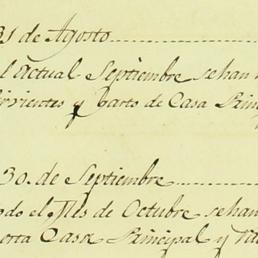 31 de Agosto
el actual Septiembre se han
sirvientes y parto de Casa Prin
30. de Septiembre
odo el Mes de Octubre se han
orta Casa Principal y